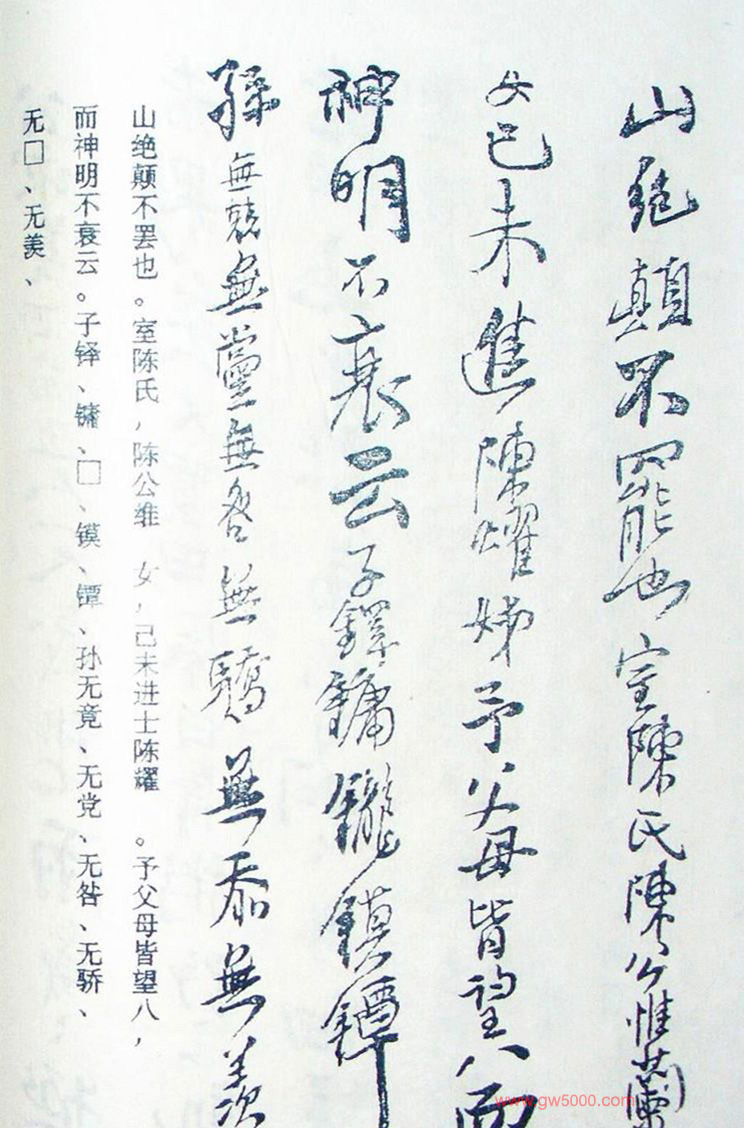 山絶顛不罷也室陳氏陳公惟蘭
女已未進陳燿姊予父母皆望八而
神明不衰云子鐸鏞鑨鏌鐔
孫無競無黨無咎無驕無忝無羡
山绝颠不罢也。室陈氏，陈公维 女，己未进士陈耀 。予父母皆望八，
而神明不衰云。子铎、镛、□、镆、镡、孙无竟、无党、无咎、无骄、
无□、无羡、
www.gw5000.com